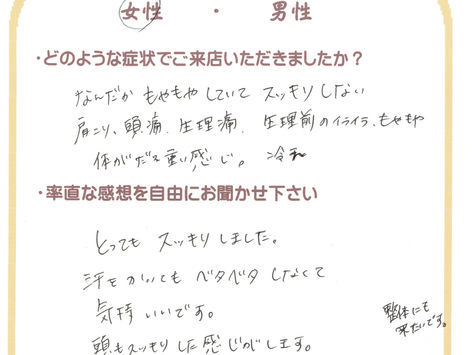 女性 ・ 男性
・どのような症状でご来店いただきましたか？
なんだか もやもやしていて スッキリしない
肩こり、頭痛、生理痛、生理前のイライラ、もやもや
体がだる重い感じ。 冷え
・率直な感想を自由にお聞かせ下さい
とっても スッキリしました。
汗をかいても ベタベタ しなくて
気持いいです。
頭もスッキリした感じがします。
整体にも
来たいです。